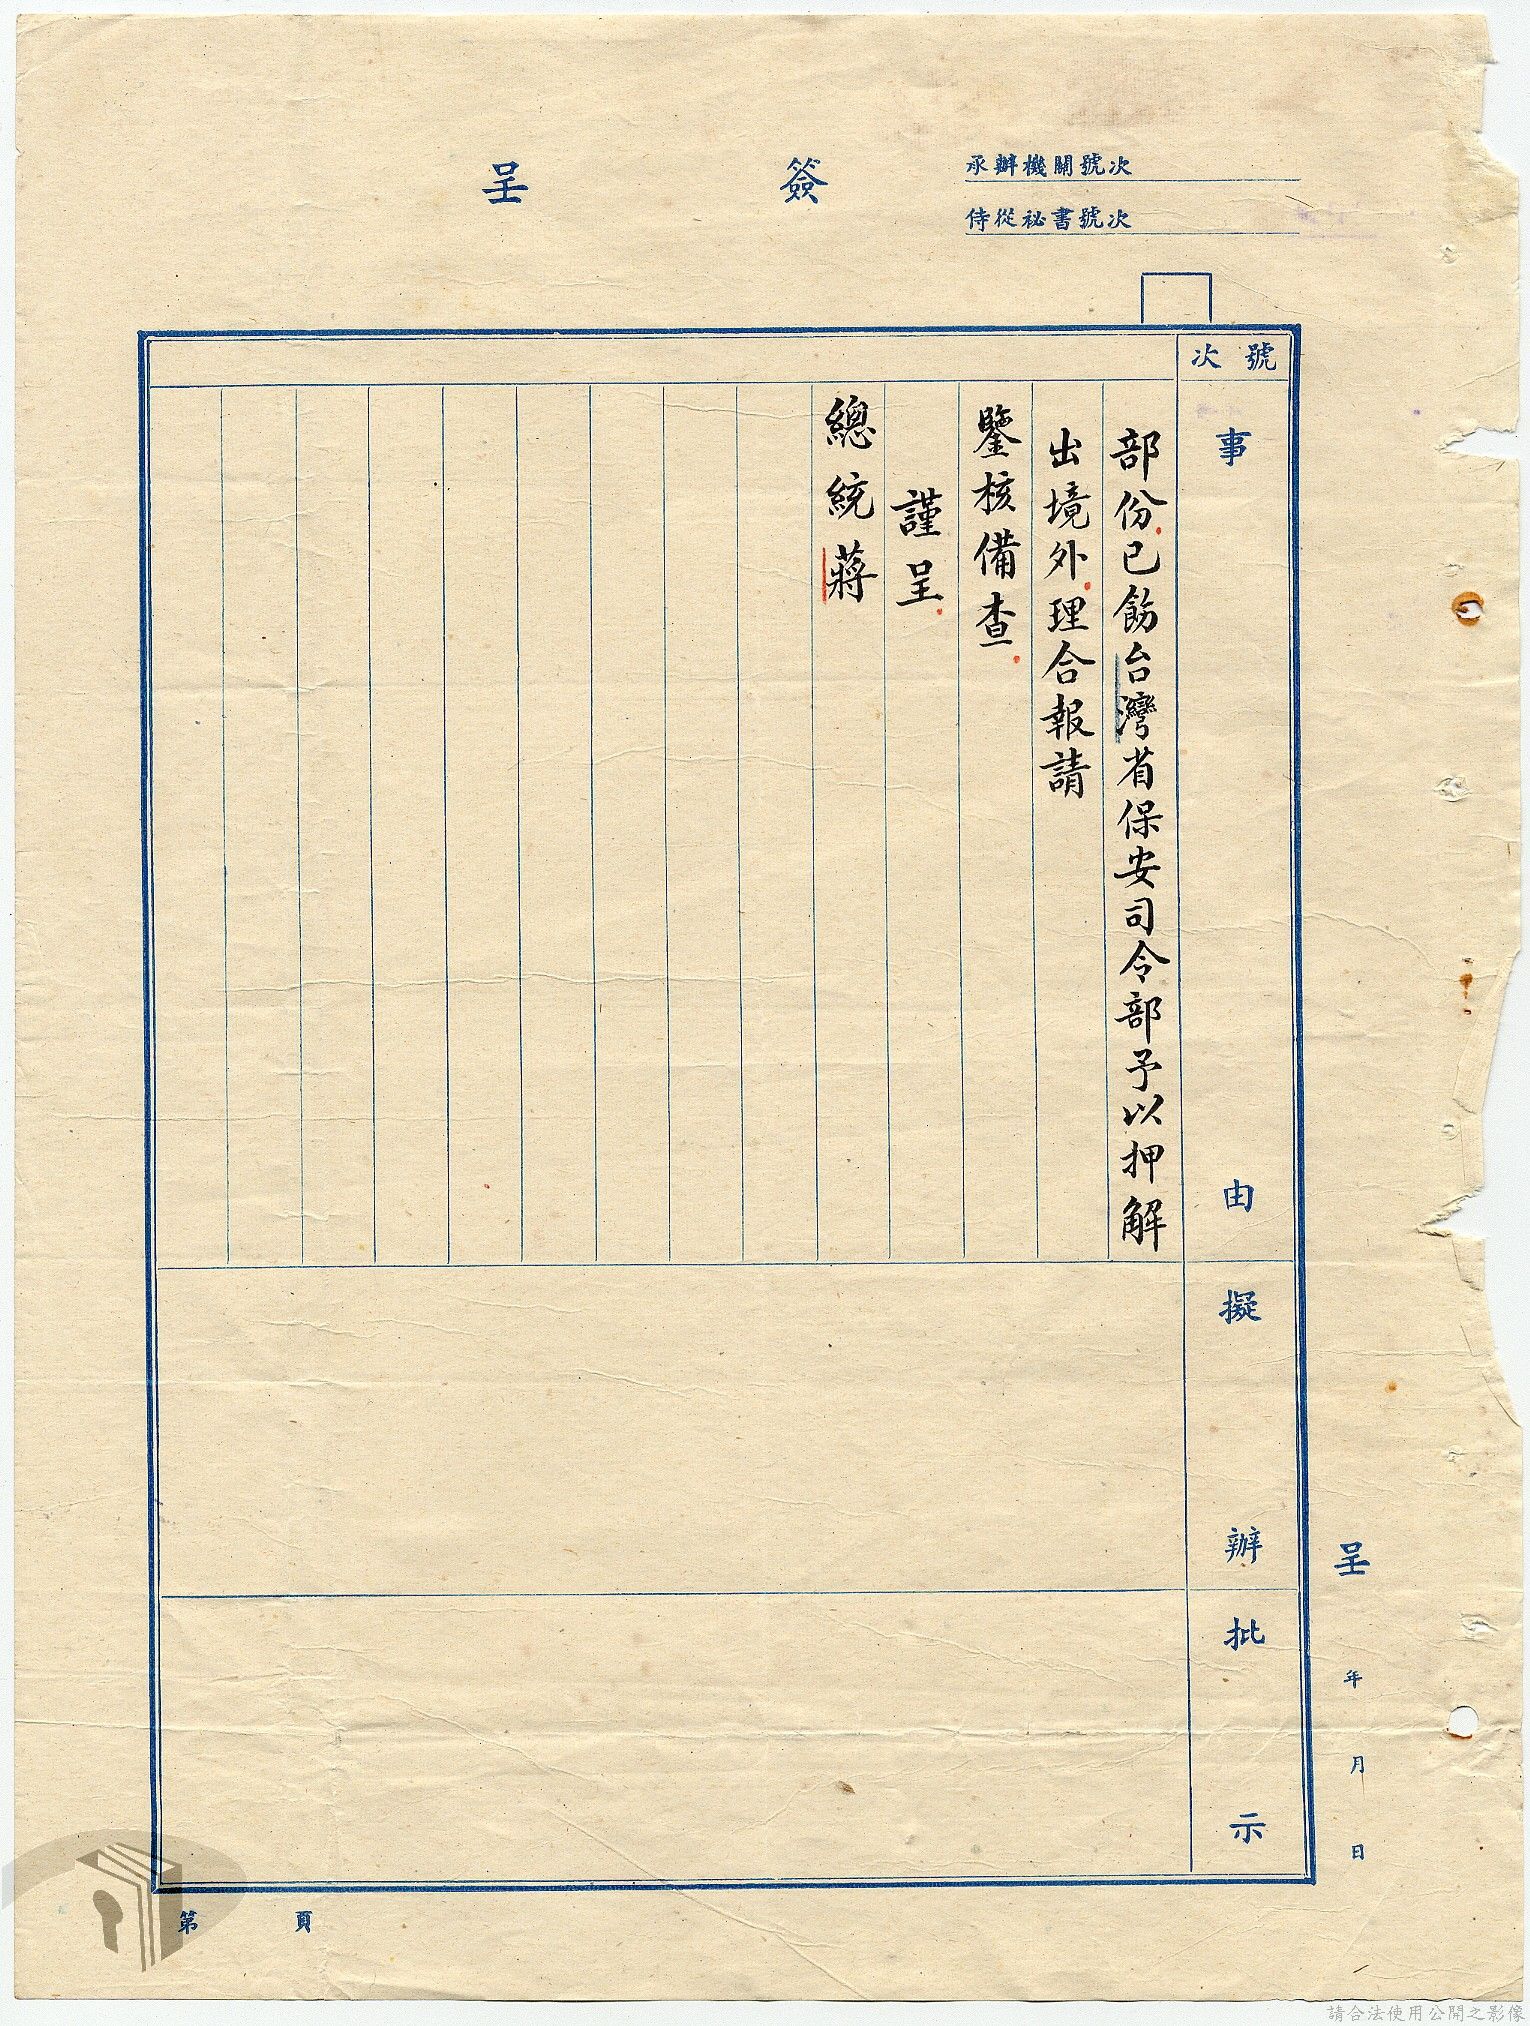 簽呈
承辦機關號次
侍從祕書號次
號次
事由
擬辦
批示
部份已飭台灣省保安司令部予以押解
出境外理合報請
鑒核備查
謹呈
總統蔣
呈 年 月 日
第 頁
請合法使用公開之影像